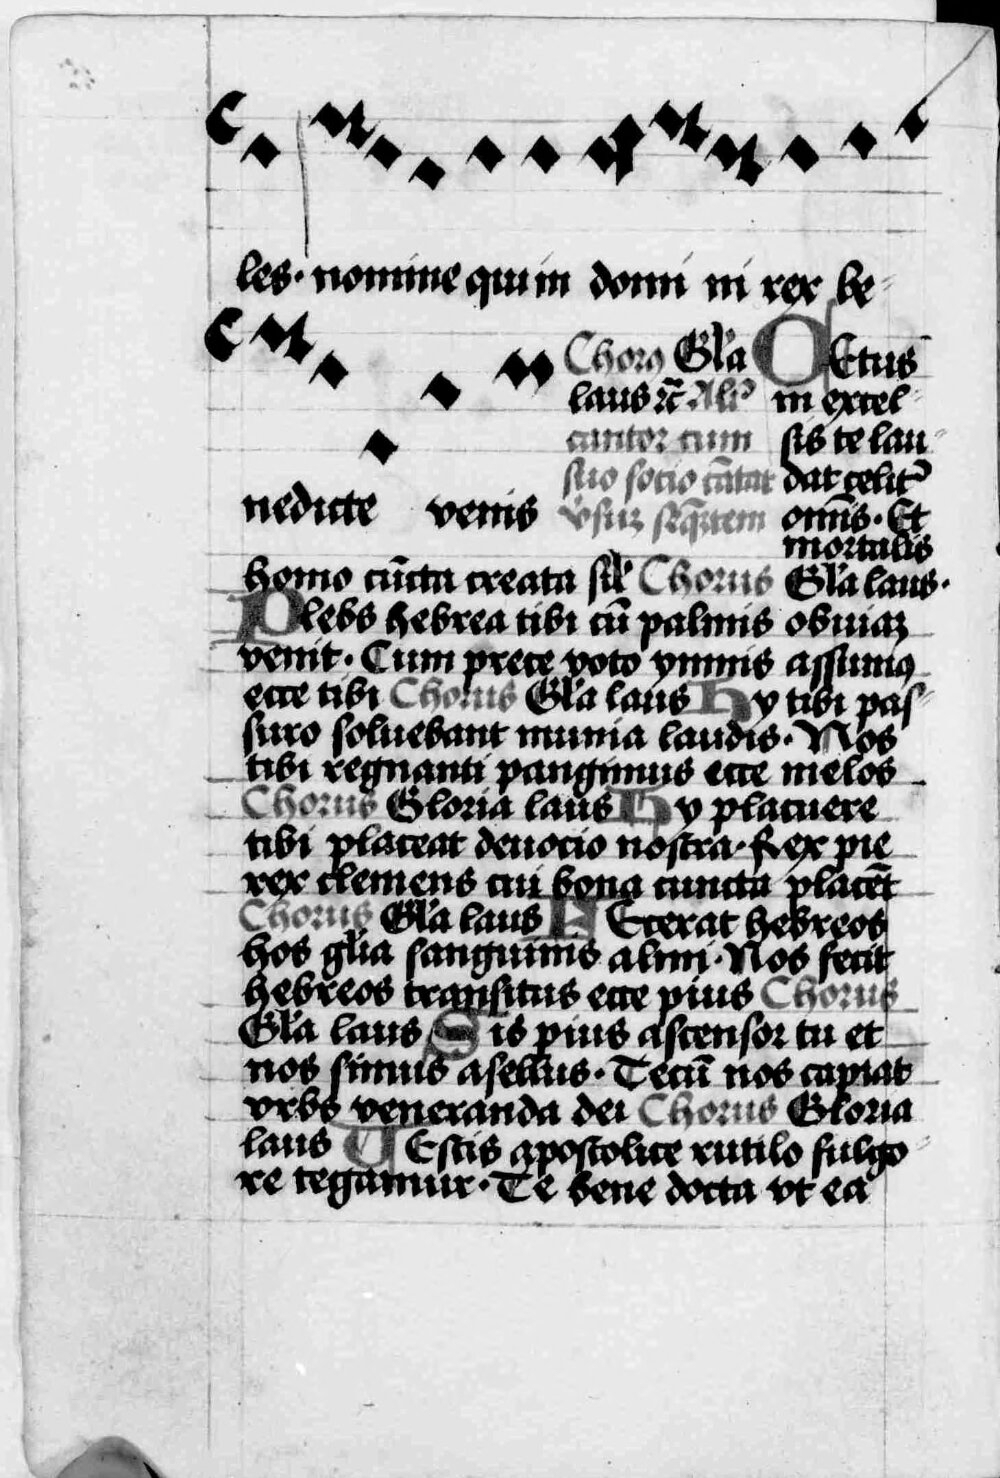 les· nomine qui in domi ni rex be-
nedicte venis
Chorꝰ Gl̃a
laus ⁊c̃ Aliꝰ
cantor cum
suo socio cãtat
v̓suꝫ sequẽtem
Cetus
in excel-
sis te lau-
dat celitꝰ
omĩs· Et
mortalis
homo cũcta creata sił Chorus Gl̃a laus·
Plebs hebrea tibi cũ palmis obuiaꝫ
venit· Cum prece voto ymnis assumꝰ
ecce tibi Chorus Gl̃a laus Hy tibi pas-
suro soluebant munia laudis· Nos
tibi regnanti pangimus ecce melos
Chorus Gloria laus Hy placuere
tibi placeat deuocio nostra· Rex pie
rex clemens cui bona cuncta placẽt
Chorus Gl̃a laus Fecerat hebreos
hos gl̃ia sanguinis almi· Nos fecit
hebreos transitus ecce pius Chorus
Gl̃a laus Sis pius ascensor tu et
nos simus asellus· Tecũ nos capiat
vrbs veneranda dei Chorus Gloria
laus Uestis apostolice rutilo fulgo-
re tegamur· Te bene docta vt ea